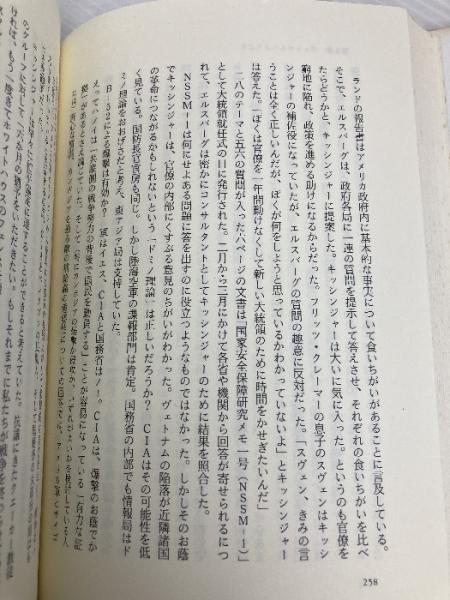 ランドの報告書はアメリカ政府内に基本的な事実について食いちがいがあることに言及している。
そこで、エルスバーグは、政府各局に一連の質問を提示して答えさせ、それぞれの食いちがいを比べ
たらどうかと、キッシンジャーに提案した。キッシンジャーは大いに気に入った。というのも官僚を
窮地に陥れ、政策を進める助けになるからだった。フリッツ・クレーマーの息子のスヴェンはキッシ
ンジャーの補佐役になっていたが、エルスバーグの質問の趣意に反対だった。「スヴェン、きみの言
うことは全く正しいんだが、ぼくが何をしようと思っているかわかっていないよ」とキッシンジャー
は答えた。「ぼくは官僚を一年間動けなくして新しい大統領のために時間をかせぎたいんだ」
二八のテーマと五六の質問が入った六ページの文書は「国家安全保障研究メモ一号（NSSM―1）」
として大統領就任式の日に発行された。二月から三月にかけて各省や機関から回答が寄せられるにつ
れて、エルスバーグは密かにコンサルタントとしてキッシンジャーのために結果を照合した。
NSSM―1は何にせよある問題に答を出すのに役立つようなものではなかった。しかしそのお蔭
でキッシンジャーは、官僚の内部にくすぶる意見のちがいがわかった。ヴェトナムの陥落が近隣諸国
の革命につながるかもしれないという「ドミノ理論」は正しいだろうか？ CIAはその可能性を低
く見ている。国防長官官房も同じ。しかし陸海空軍の諜報部門は肯定。国務省の内部でも情報局はド
ミノ理論をおおげさだと考え、東アジア局は支持していた。
B―52による爆撃は有効か？ 軍はイエス、CIAと国務省はノー。CIAは、爆撃のお蔭でか
えって、ハノイは「共産側の戦争努力の背後で国民を動員する」ことが容易になっている「有力な証
拠」があるとさえ論じていた。
258